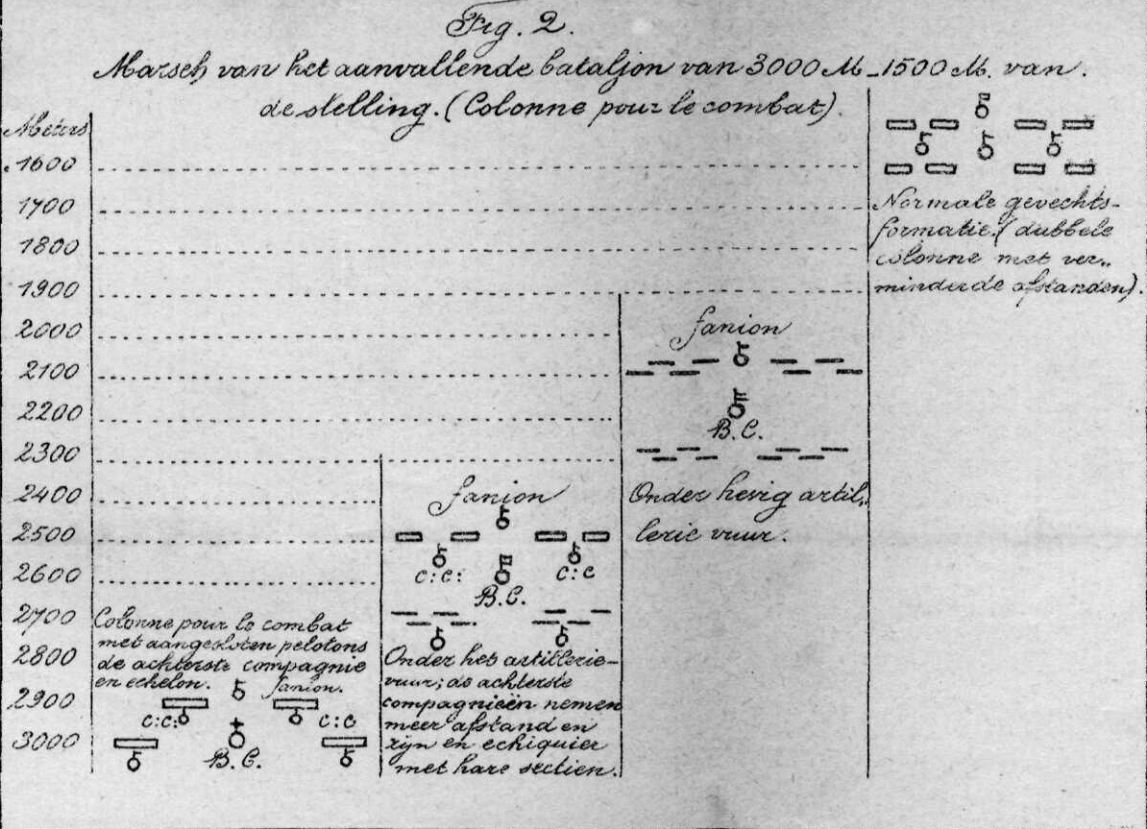 Fig. 2.
Marsch van het aanvallende bataljon van 3000 M_1500 M. van.
de stelling. (Colonne pour le combat).
Meters
1600
1700
1800
1900
2000
2100
2200
2300
2400
2500
2600
2700
2800
2900
3000
Colonne pour le combat
met aangesloten pelotons
de achterste compagnie
en echelon.
fanion.
C:C:
C:C
B.C.
fanion
C:C:
C:C
B.C.
Onder het artillerie-
vuur; de achterste
compagnieën nemen
meer afstand en
zijn en echiquier
met hare sectien.
fanion
B.C.
Onder hevig artil„
lerie vuur.
Normale gevechts-
formatie. (dubbele
colonne met ver„
minderde afstanden).